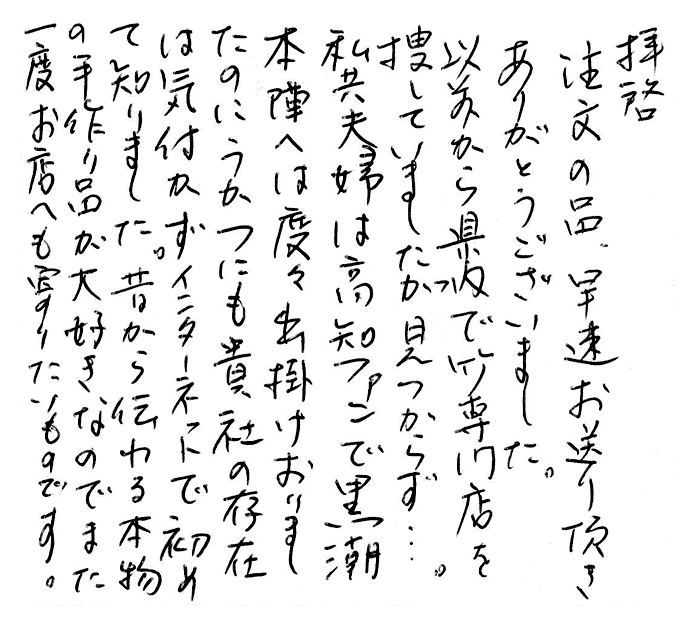 拝啓
注文の品、早速お送り頂き
ありがとうございました。
以前から県内で竹専門店を
捜していましたが見つからず…。
私共夫婦は高知ファンで黒潮
本陣へは度々出掛けおりまし
たのにうかつにも貴社の存在
は気付かずインターネットで初め
て知りました。昔から伝わる本物
の手作り品が大好きなのでまた
一度お店へも寄りたいものです。